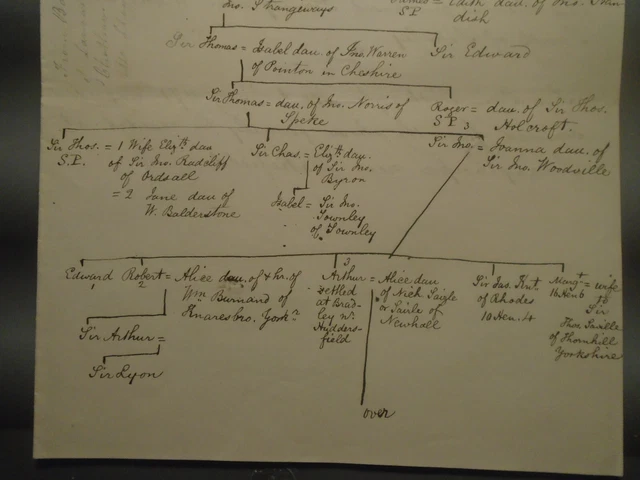 Jno. Strangeways
James = Edith dau. of Jno.
dish
S.P.
Sir Thomas = Isabel dau. of Jno Warren
of Pointon in Cheshire
Sir Edward
Sir Thomas = dau. of Jno. Norris of
Speke
Roger = dau. of Sir Thos.
S.P. Holcroft.
Sir Thos. = 1 Wife Eliz.th dau
S.P. of Sir Jno. Radcliff
of Ordsall
= 2 Jane dau of
W. Balderstone
Sir Chas. = Eliz.th dau.
of Sir Jno.
Byron
Isabel = Sir Jno.
Townley
of Townley
3
Sir Jno. = Joanna dau. of
Sir Jno. Woodville
Edward
1
Robert = Alice dau. of & hr. of
2 Wm Burnand of
Knaresbro. York
Sir Arthur =
Sir Lyon
3
Arthur = Alice dau
settled of Nich Saigle
at Brad- or Saile of
ley nr. Newhall
Hudders-
field
over
Sir Jas. Knt.
of Rhodes
10 Hen. 4
= wife
16 Hen. 6 to
Sir
Thos. Saville
of Thornhill
Yorkshire